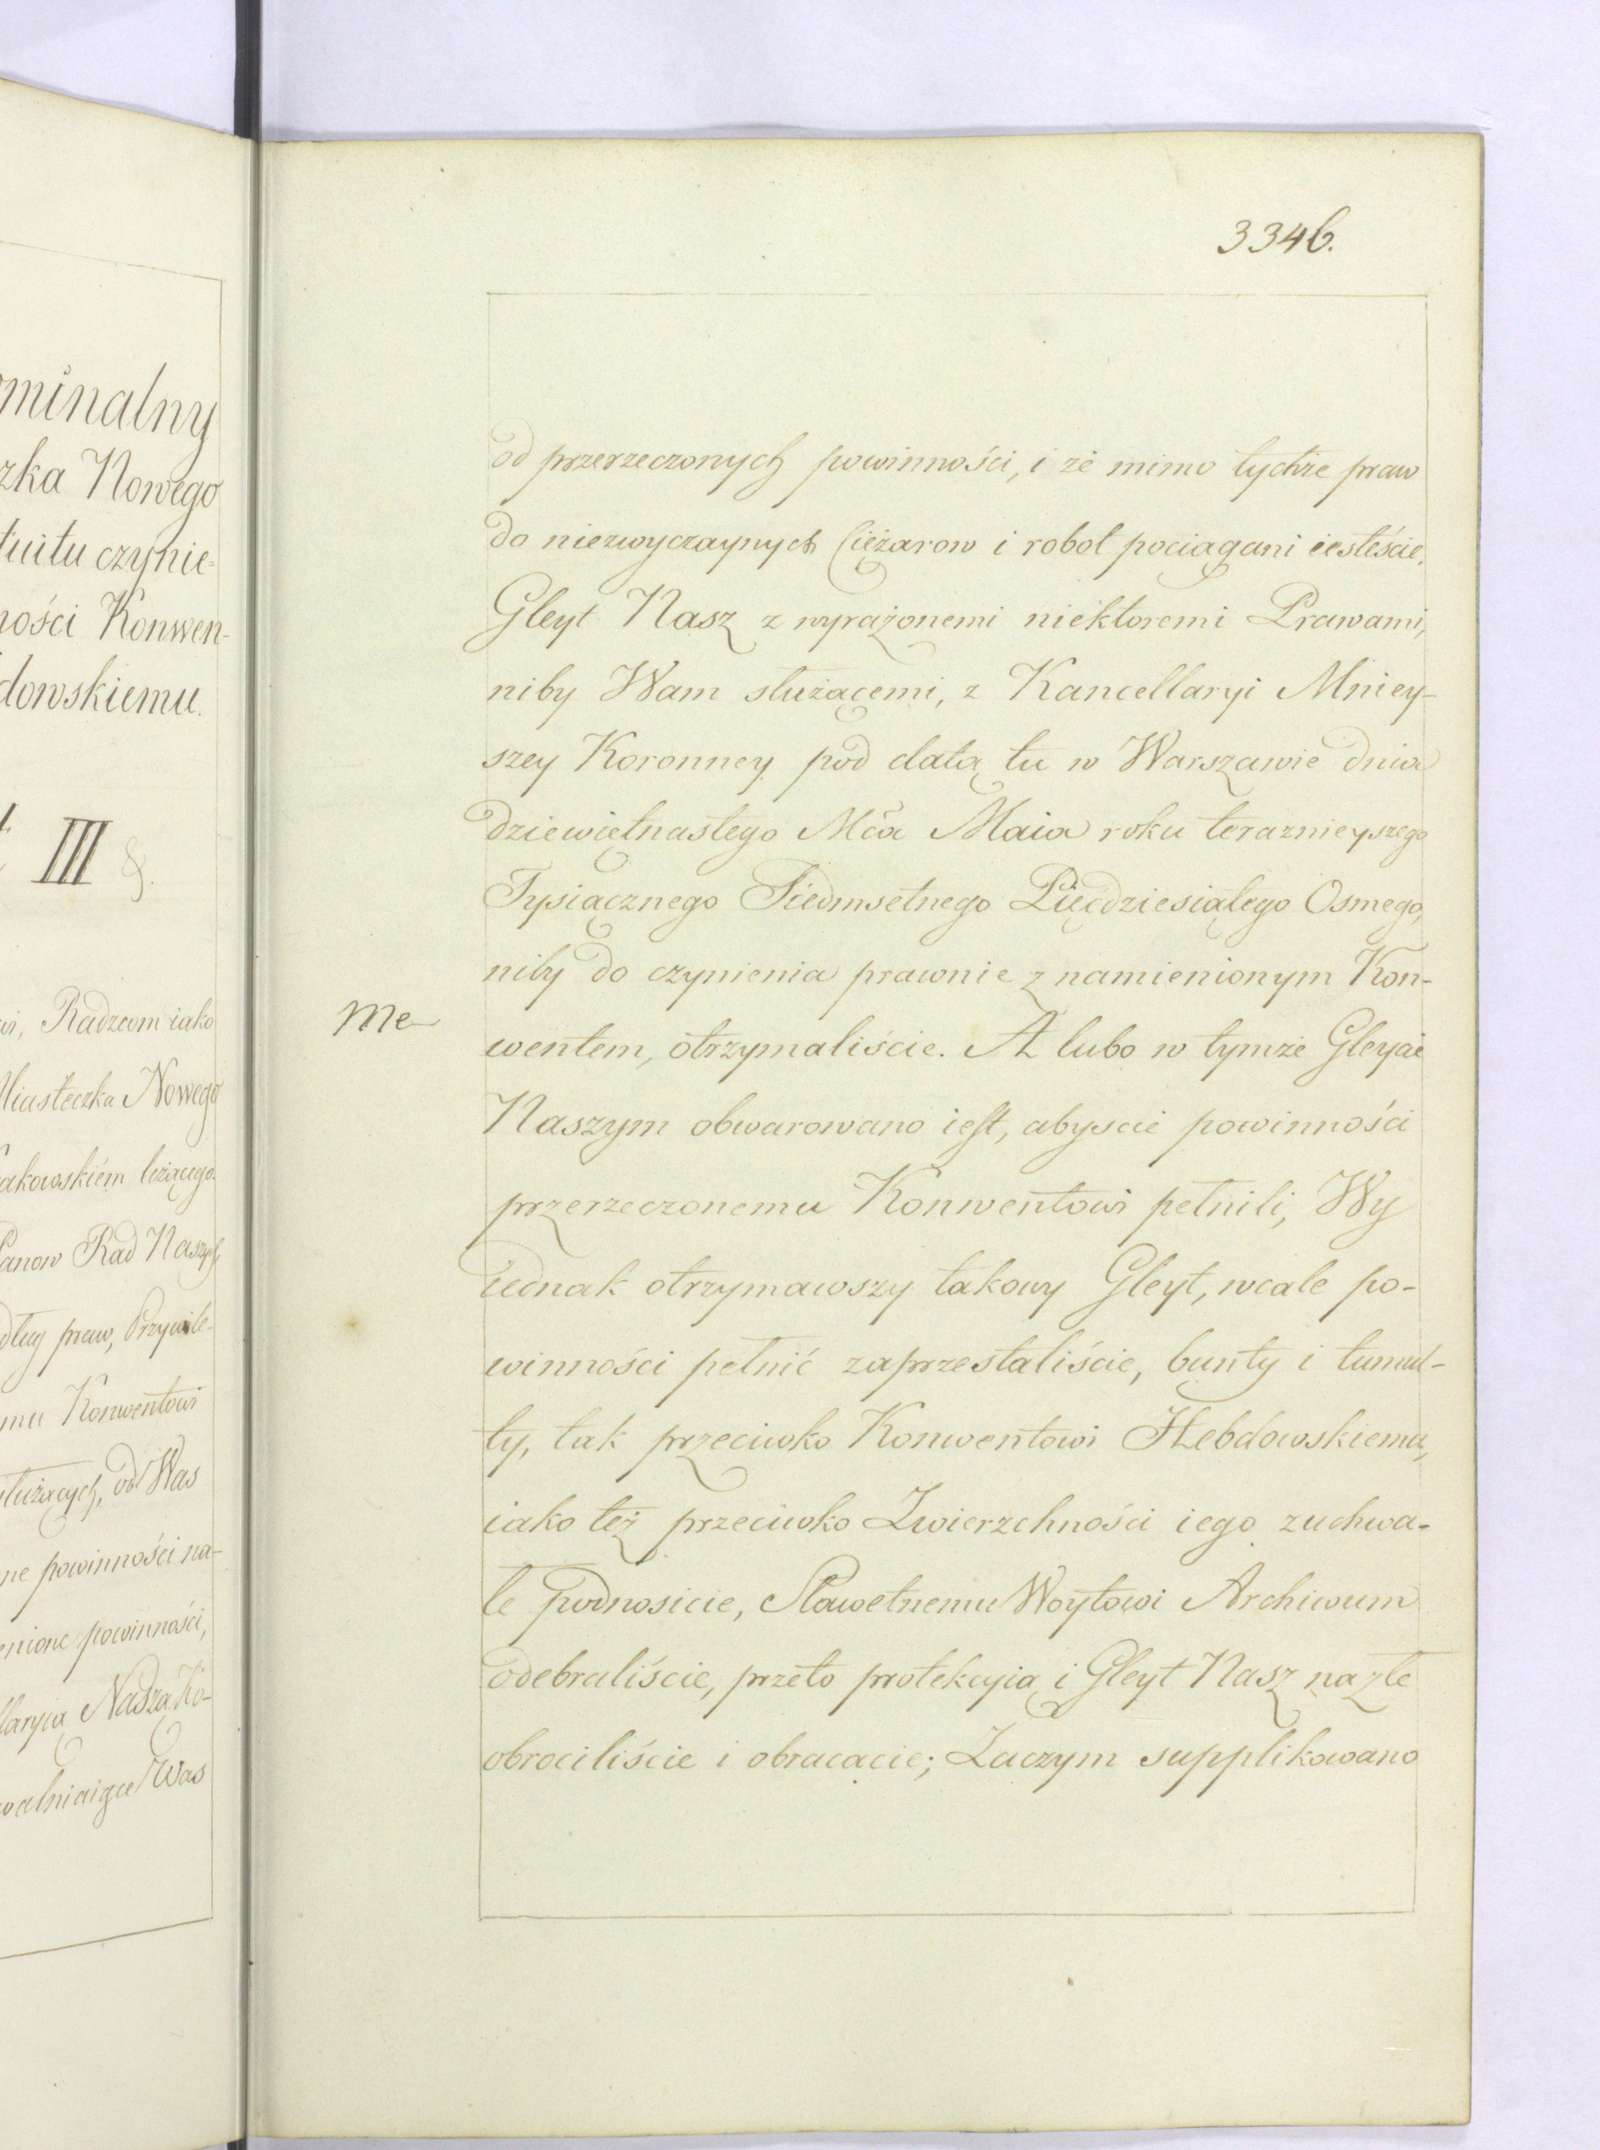 minalny
zka Nowego
tuitu czynie=
ności Konwen-
dowskiemu.
III
Radzcom iako
Miasteczka Nowego
akowskiém leżącego
Panow Rad Naszych
dług praw, Przywile-
mu Konwentowi
służących, od Was
ne powinności na-
enione powinności,
llaryią Naszą Ko-
walniaiąca Was
3346.
od przerzeczonych powinności, i że mimo tychże praw
do niezwyczaynych Ciężarow i robot pociągani iesteście,
Gleyt Nasz z wyrażonemi niektoremi Prawami,
niby Wam służącemi, z Kancellaryi Mniey-
szey Koronney pod datą tu w Warszawie dnia
dziewiętnastego Mca Maia roku teraznieyszego
Tysiącznego Siedmsetnego Pięćdziesiątego Osmego,
niby do czynienia prawnie z namienionym Kon-
Me
wentem, otrzymaliście. A lubo w tymże Gleycie
Naszym obwarowano iest, abyscie powinności
przerzeczonemu Konwentowi pełnili, Wy
iednak otrzymawszy takowy Gleyt, wcale po-
winności pełnić zaprzestaliście, bunty i tumul-
ty, tak przeciwko Konwentowi Hebdowskiemu,
iako też przeciwko Zwierzchności iego zuchwa-
le podnosicie, Sławetnemu Woytowi Archiwum
odebraliście, przeto protekcyią i Gleyt Nasz na złe
obrociliście i obracacie; Zaczym supplikowano